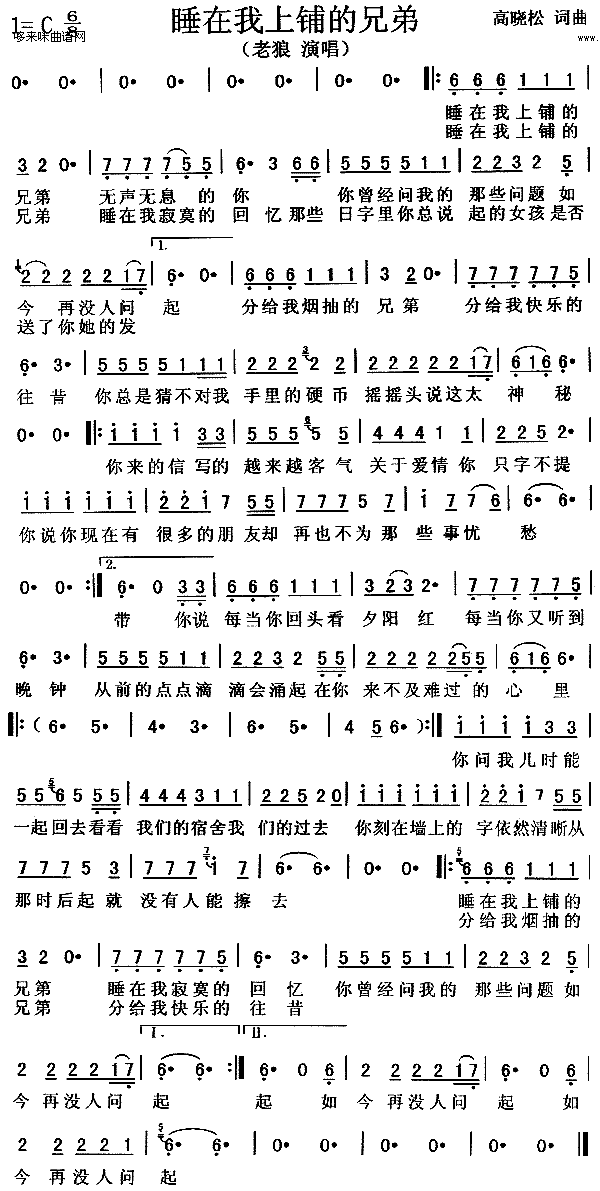 睡在我上铺的兄弟
1=C 6/8
哆来咪曲谱网
高晓松 词曲
www.
（老狼 演唱）
0· 0· | 0· 0· | 0· 0· | 0· 0· ‖: 6 6 6 1 1 1 |
睡在我上铺的
睡在我上铺的
3 2 0· | 7 7 7 7 5 5 | 6· 3 6 6 | 5 5 5 5 1 1 | 2 2 2 3 2 5 |
兄第 无声无息 的你 你曾经问我的 那些问题 如
兄弟 睡在我寂寞的 回 忆那些 日字里你总说 起的女孩是否
1.
2 2 2 2 2 1 7 | 6· 0· | 6 6 6 1 1 1 | 3 2 0· | 7 7 7 7 7 5 |
今 再没人问 起 分给我烟抽的 兄 第 分给我快乐的
送了你她的发
6· 3· | 5 5 5 5 1 1 1 | 2 2 2 2 2 | 2 2 2 2 2 1 7 | 6 1 6 6· |
往 昔 你总是猜不对我 手里的硬币 摇摇头说这太 神 秘
0· 0· ‖: i i i i 3 3 | 5 5 5 5 5 | 4 4 4 4 1 1 | 2 2 5 2· |
你来的信写的 越来越客 气 关于爱情你 只字不提
i i i i i i | 2 2 i 7 5 5 | 7 7 7 7 5 3 | i 7 7 6 | 6· 6· |
你说你现在有 很多的朋友却 再也不为那 些事忧 愁
2.
0· 0· :‖ 6· 0 3 3 | 6 6 6 1 1 1 | 3 2 3 2· | 7 7 7 7 7 5 |
带 你说 每当你回头看 夕阳 红 每当你又听到
6· 3· | 5 5 5 5 1 1 | 2 2 3 2 5 5 | 2 2 2 2 2 5 5 | 6 1 6 6· |
晚 钟 从前的点点滴 滴会涌起在你 来不及难过的 心 里
‖: ( 6· 5· | 4· 3· | 6· 5· | 4 5 6· ) :‖ i i i i 3 3 |
你问我儿时能
5 5 6 5 5 5 | 4 4 4 3 1 1 | 2 2 2 5 2 0 | i i i i i i | 2 2 i 7 5 5 |
一起回去看看 我们的宿舍我 们的过去 你刻在墙上的 字依然清晰从
7 7 7 7 5 3 | 7 7 7 i 7 | 6· 6· | 0· 0· ‖: 6 6 6 1 1 1 |
那时后起就 没有人能擦去 睡在我上铺的
分给我烟抽的
3 2 0· | 7 7 7 7 7 5 | 6· 3· | 5 5 5 5 1 1 | 2 2 3 2 5 |
兄第 睡在我寂寞的 回 忆 你曾经问我的 那些问题如
兄第 分给我快乐的 往 昔
I. II.
2 2 2 2 1 7 | 6· 6· :‖ 6· 0 6 | 2 2 2 2 1 7 | 6· 0 6 |
今 再没人问 起 起 如 今 再没人问 起 如
2 2 2 2 1 | 6· 6· | 0· 0· | 0· 0· | 0· 0· ‖
今 再没人问 起